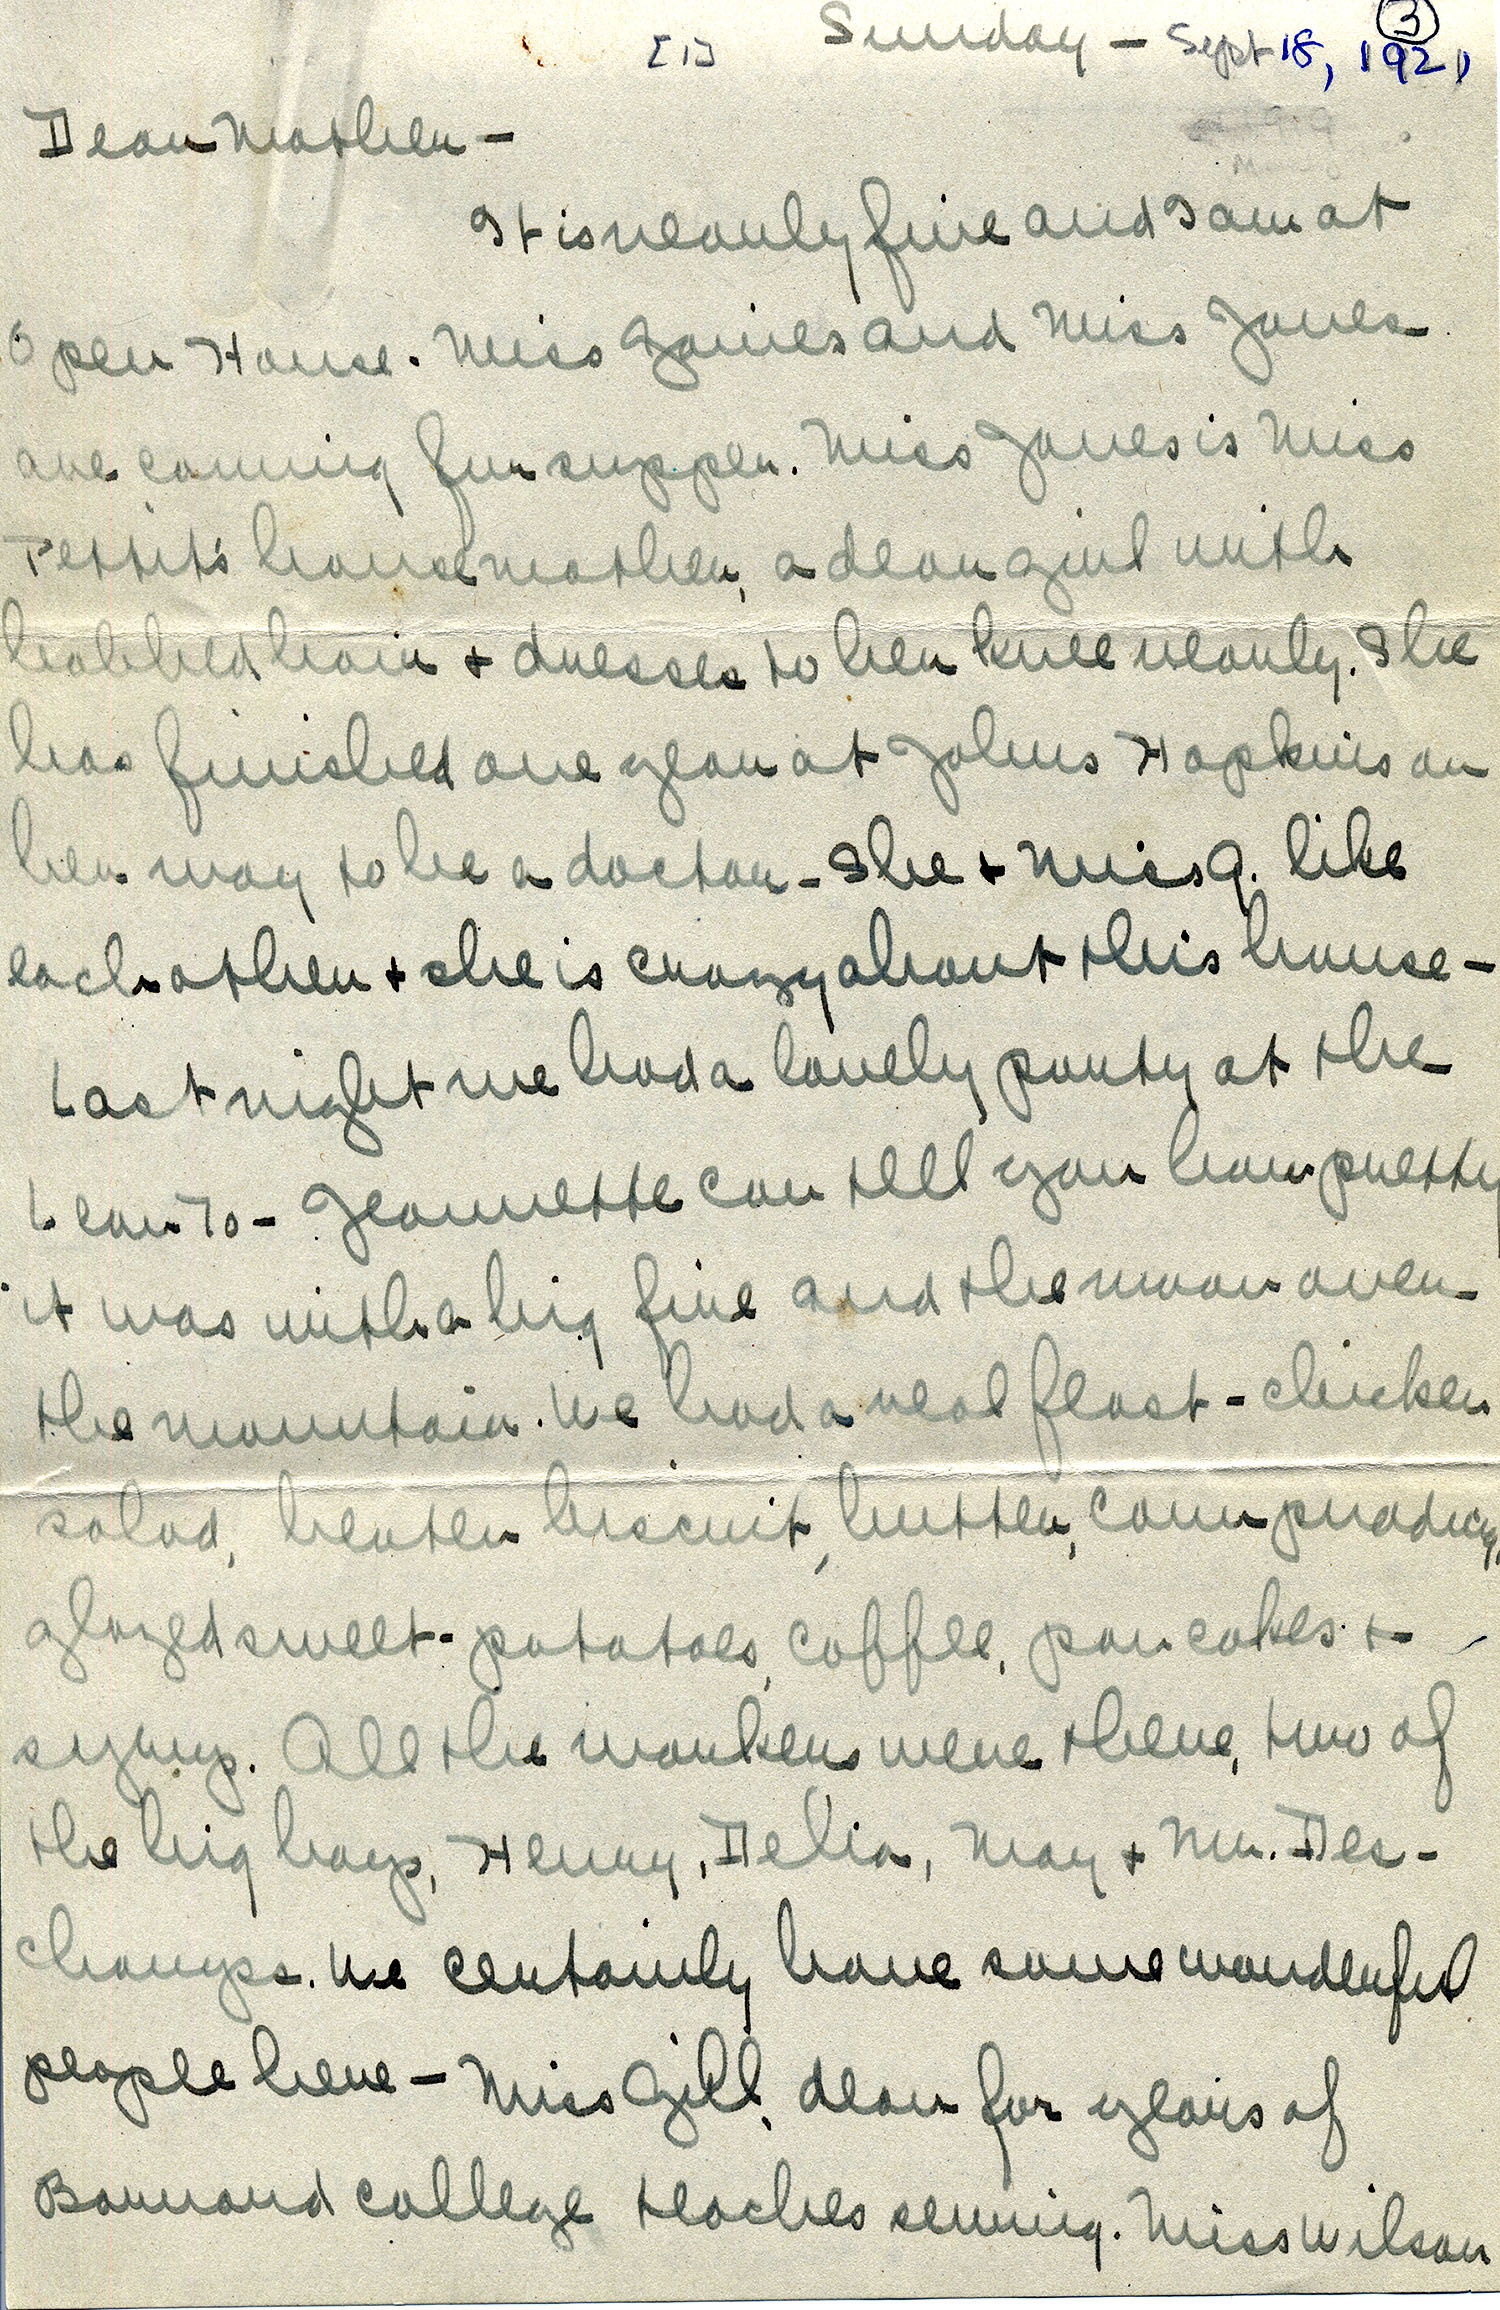 ③
[1] Sunday - Sept 18, 1921
Dear Mother -
It is nearly five and I am at
Open House. Miss Gaines and Miss Jones
are coming for supper. Miss Jones is Miss
Pettit's housemother, a dear girl with
bobbed hair + dresses to her knee nearly. She
has finished one year at Johns Hopkins on
her way to be a doctor - She + Miss G. like
each other + she is crazy about this house -
Last night we had a lovely party at the
Lean To - Jeannette can tell you how pretty
it was with a big fire and the moon over
the mountain. We had a real feast - chicken
salad, beaten biscuit, butter, corn pudding,
glazed sweet-potatoes, coffee, pancakes +
syrup. All the workers were there, two of
the big boys, Henry, Delia, May + Mr. Des-
champs. We certainly have some wonderful
people here - Miss Gill, dean for years of
Barnard College teaches sewing. Miss Wilson